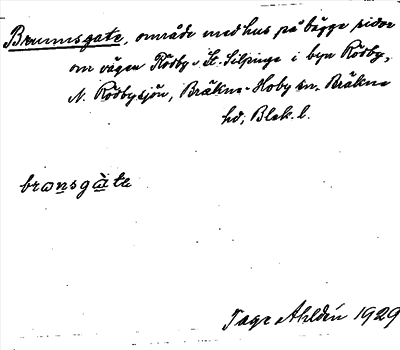 Brunnsgate, område med hus på bägge sidor
om vägen Rödby - St. Silpinge i byn Rödby,
N. Rödbysjön, Bräkne-Hoby sn. Bräkne
hd, Blek. l.
bronsgàte
Tage Ahldén 1929